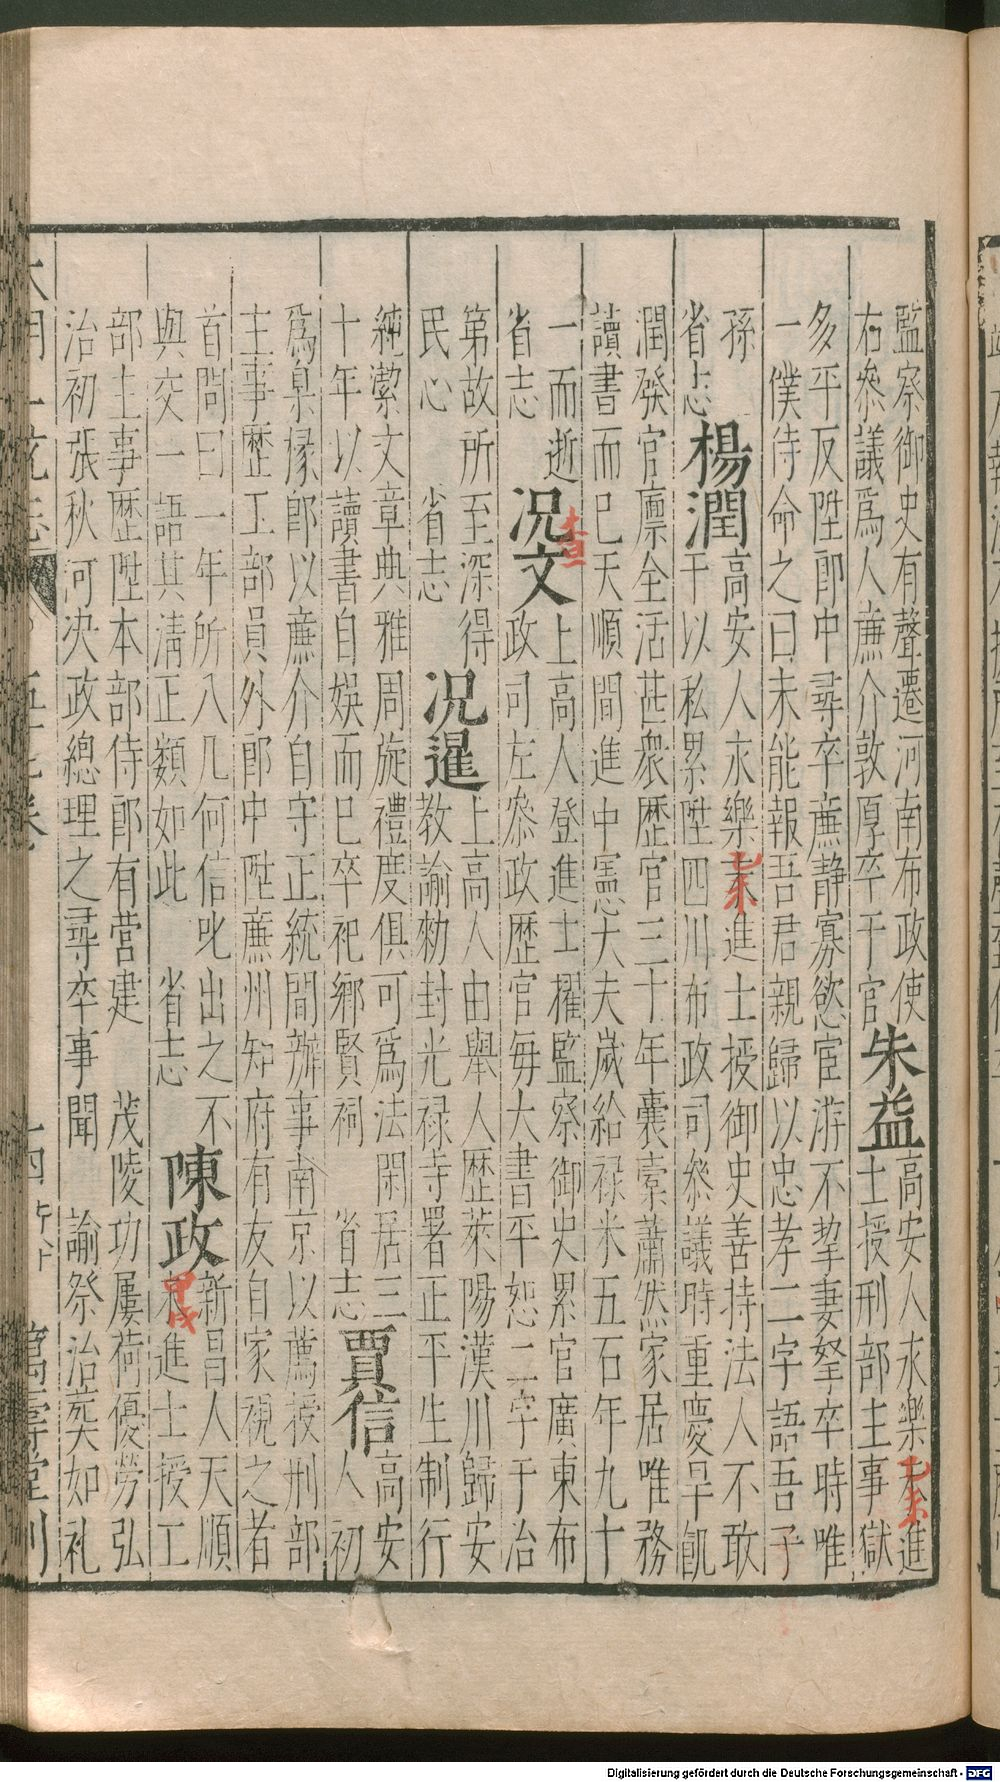 監察御史有聲遷河南布政使
右叅議爲人亷介敦厚卒于官
朱益
高安人永樂乙未進
士授刑部主事獄
多平反陞郎中尋卒亷靜寡慾宦游不挈妻孥卒時唯
一僕侍命之曰未能報吾君親歸以忠孝二字語吾子
孫
省志
楊潤
高安人永樂乙未進士授御史善持法人不敢
干以私累陞四川布政司叅議時重慶旱飢
潤發官廪全活甚衆歷官三十年囊槖蕭然家居唯務
讀書而已天順間進中憲大夫歲給禄米五石年九十
一而逝
省志
况文
查
上高人登進士擢監察御史累官廣東布
政司左叅政歷官每大書平恕二字于治
第故所至深得
民心 省志
况暹
上高人由舉人歷萊陽漢川歸安
教諭勑封光禄寺署正平生制行
純潔文章典雅周旋禮度俱可爲法閑居三
十年以讀書自娛而已卒祀鄉賢祠 省志
賈信
高安
人初
爲臬掾郎以亷介自守正統間辦事南京以薦授刑部
主事歷工部員外郎中陞亷州知府有友自家視之者
首問曰一年所入几何信叱出之不
與交一語其清正類如此 省志
陳政
新昌人天順
甲戌進士授工
部主事歷陞本部侍郎有營建 茂陵功屢荷優勞弘
治初張秋河决政總理之尋卒事聞 諭祭治葬如礼
萬壽堂刊
Digitalisierung gefördert durch die Deutsche Forschungsgemeinschaft - DFG